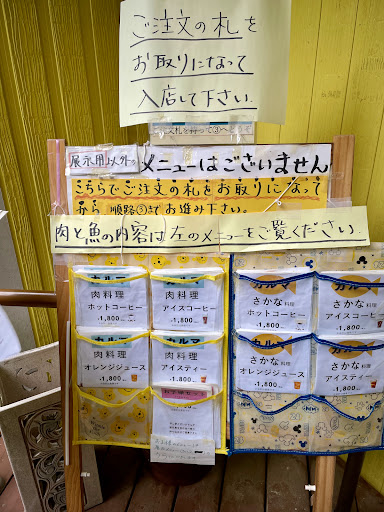 ご注文の札を
お取りになって
入店して下さい。
展示用以外の
メニューはございません
こちらでご注文の札をお取りになって
から 順路③までお進み下さい。
肉と魚の内容は左のメニューをご覧ください。
カルマ
肉料理
ホットコーヒー
¥1,800
カルマ
肉料理
アイスコーヒー
¥1,800
カルマ
さかな料理
ホットコーヒー
¥1,800
カルマ
さかな料理
アイスコーヒー
¥1,800
カルマ
肉料理
オレンジジュース
¥1,800
カルマ
肉料理
アイスティー
¥1,800
カルマ
さかな料理
オレンジジュース
¥1,800
カルマ
さかな料理
アイスティー
¥1,800